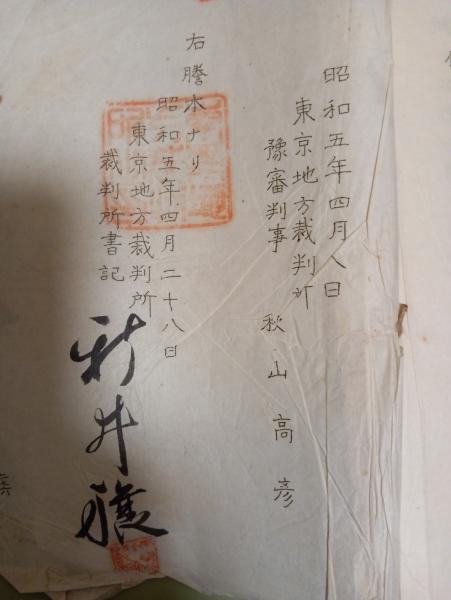 昭和五年四月八日
東京地方裁判所
豫審判事 秋山高彦
右謄本ナリ
昭和五年四月二十八日
東京地方裁判所
裁判所書記
新井